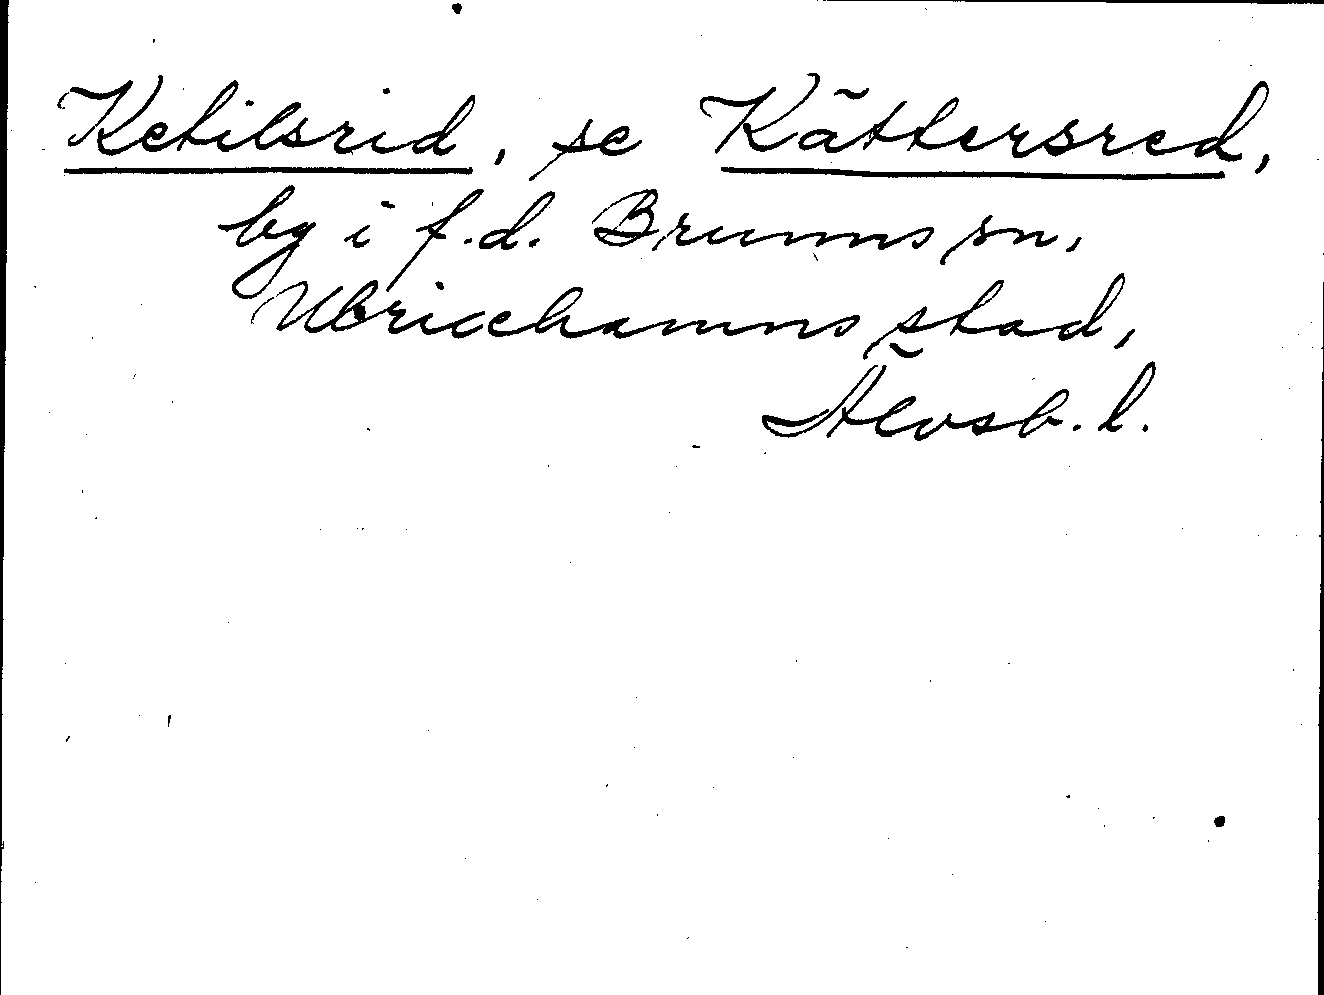 Ketilsrid, se Kättersred,
by i f.d. Brunns sn,
Ulricehamns stad,
Älvsb. l.